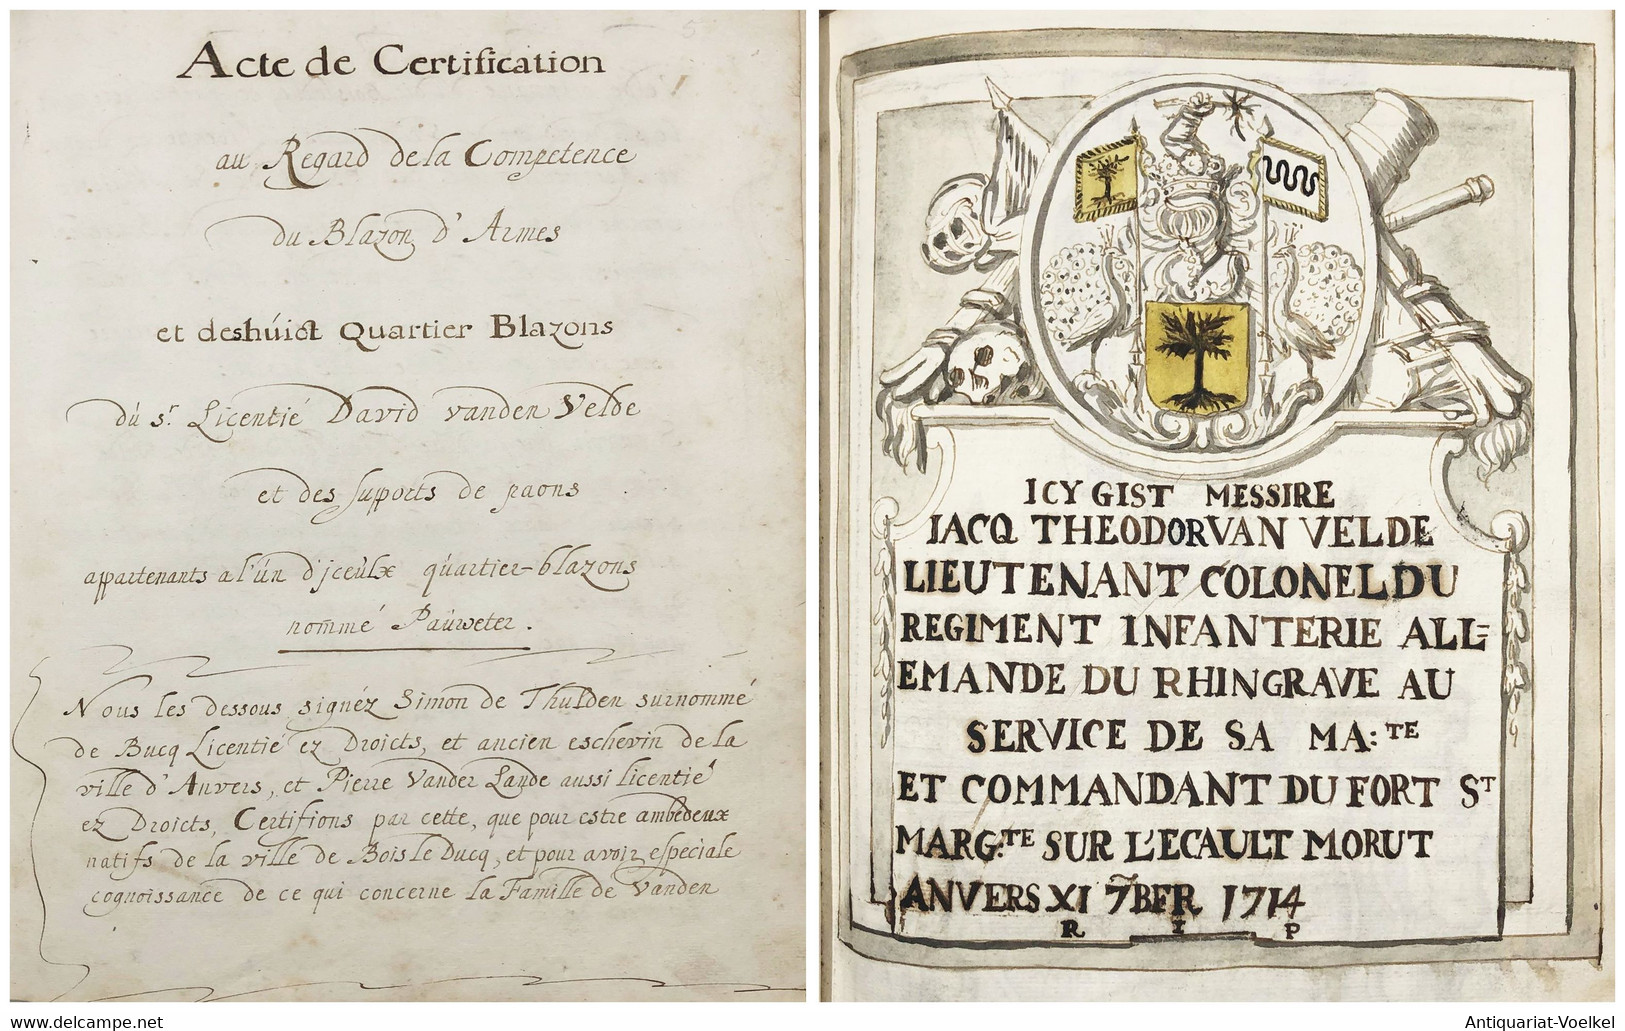 Acte de Certification
au Regard de la Competence
du Blazon d'Armes
et deshúict Quartier Blazons
dú sr. Licentié David vanden Velde
et des supports de paons
appartenants a l'ún d'jceúlx quartier-blazons
nommé Paúweter.
Nous les dessous signéz Simon de Thulden surnommé
de Bucq Licentié ez Droicts, et ancien eschevin de la
ville d'Anvers, et Pierre Vander Lande aussi licentié
ez Droicts, Certifions par cette, que pour estre ambedeux
natifs de la ville de Bois le Ducq, et pour avoir especiale
cognoissance de ce qui concerne la Famille de Vanden
ICY GIST MESSIRE
IACQ THEODOR VAN VELDE
LIEUTENANT COLONEL DU
REGIMENT INFANTERIE ALL=
EMANDE DU RHINGRAVE AU
SERVICE DE SA MA:TE
ET COMMANDANT DU FORT ST
MARG:TE SUR L'ECAULT MORUT
ANVERS XI 7BER 1714
R I P
www.delcampe.net
Antiquariat-Voelkel